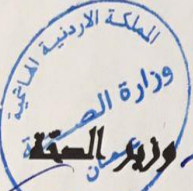 المملكة الاردنية الهاشمية
وزارة الصحة
وزير الصحة
عمان